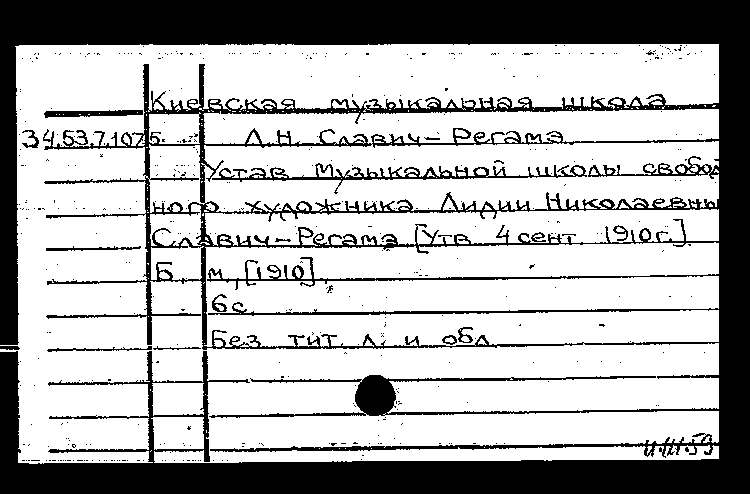 Киевская музыкальная школа
34.53.7.1075. Л.Н. Славич-Регама
Устав музыкальной школы свобод
ного художника Лидии Николаевны
Славич-Регама [Утв. 4 сент. 1910г.]
Б. м., [1910].
6с.
Без тит. л. и обл.